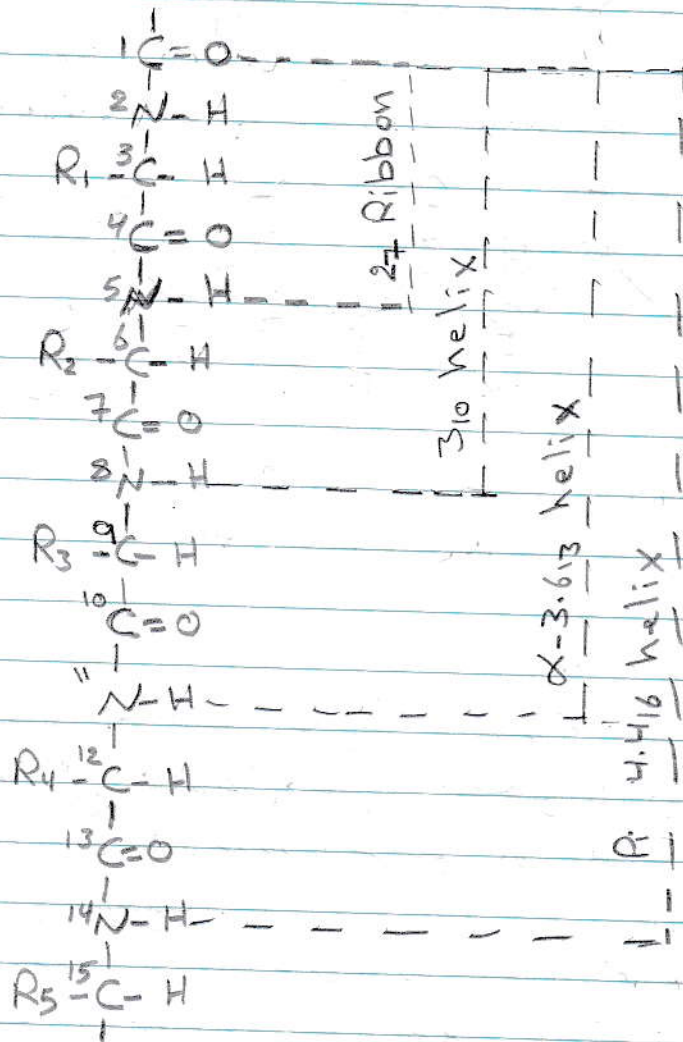 1 C=O
2 N-H
R1-3 C-H
4 C=O
5 N-H
R2-6 C-H
7 C=O
8 N-H
R3-9 C-H
10 C=O
11 N-H
R4-12 C-H
13 C=O
14 N-H
R5-15 C-H
27 Ribbon
310 helix
α-3.613 helix
Pi 4.416 helix